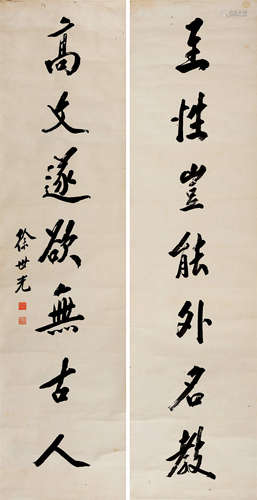 至性豈能外名教
高文遂欲無古人
徐世光